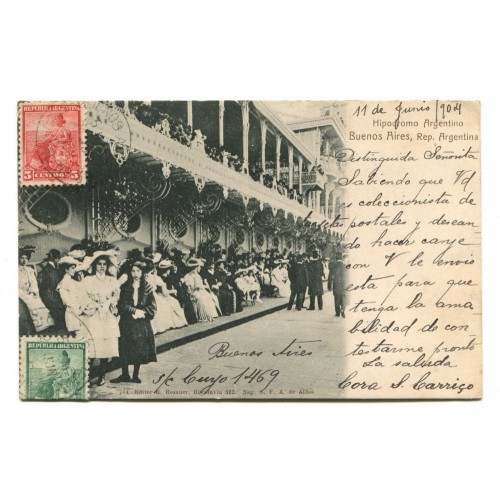 11 de Junio/904
Hipodromo Argentino
Buenos Aires, Rep. Argentina
REPUBLICA ARGENTINA
5 CENTAVOS 5
Distinguida Señorita
Sabiendo que Vd
es coleccionista de
tarjetas postales y desean
do hacer canje
con V le envio
esta para que
tenga la ama
bilidad de con
testarme pronto
La saluda
Cora S. Carrigo
Buenos Aires
s/c Cuyo 1469
Editor R. Rosauer, Rivadavia 522. Neg. S. F. A. de Afdos
REPUBLICA ARGENTINA